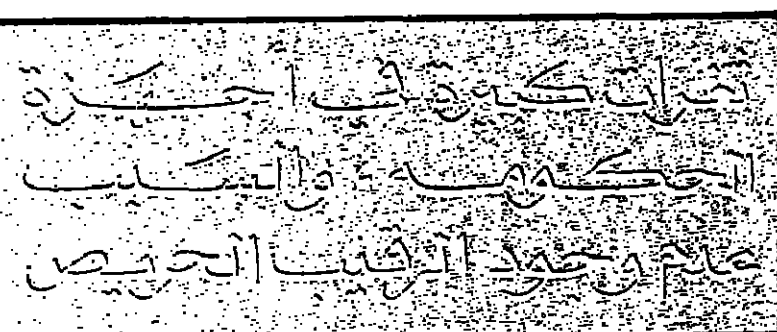 ثغرات كبيرة في أجهزة
الحكومة - والسبب
عدم وجود الرقيب الحريص